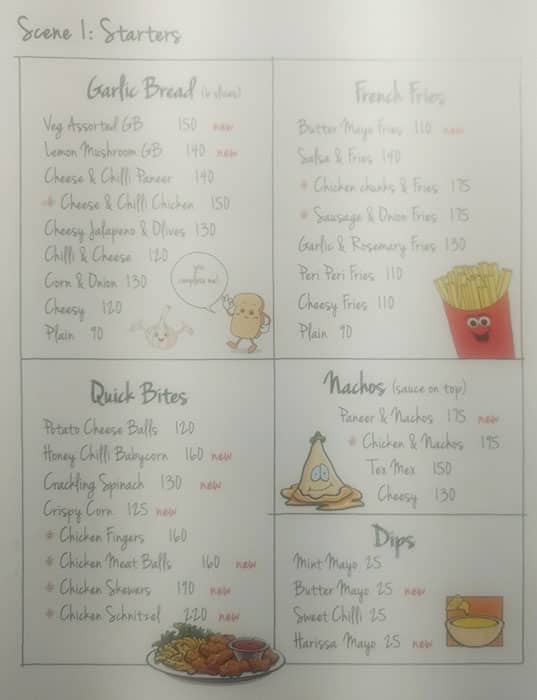 Scene 1: Starters
Garlic Bread (6 slices)
Veg Assorted GB 150 new
Lemon Mushroom GB 140 new
Cheese & Chilli Paneer 140
* Cheese & Chilli Chicken 150
Cheesy Jalapeno & Olives 130
Chilli & Cheese 120
Corn & Onion 130
Cheesy 120
Plain 90
you
complete me!
French Fries
Butter Mayo Fries 110 new
Salsa & Fries 140
* Chicken chunks & Fries 175
* Sausage & Onion Fries 175
Garlic & Rosemary Fries 130
Peri Peri Fries 110
Cheesy Fries 110
Plain 90
Quick Bites
Potato Cheese Balls 120
Honey Chilli Babycorn 160 new
Crackling Spinach 130 new
Crispy Corn 125 new
* Chicken Fingers 160
* Chicken Meat Balls 160 new
* Chicken Skewers 190 new
* Chicken Schnitzel 220 new
Nachos (sauce on top)
Paneer & Nachos 175 new
* Chicken & Nachos 195
Tex Mex 150
Cheesy 130
Dips
Mint Mayo 25
Butter Mayo 25 new
Sweet Chilli 25
Harissa Mayo 25 new